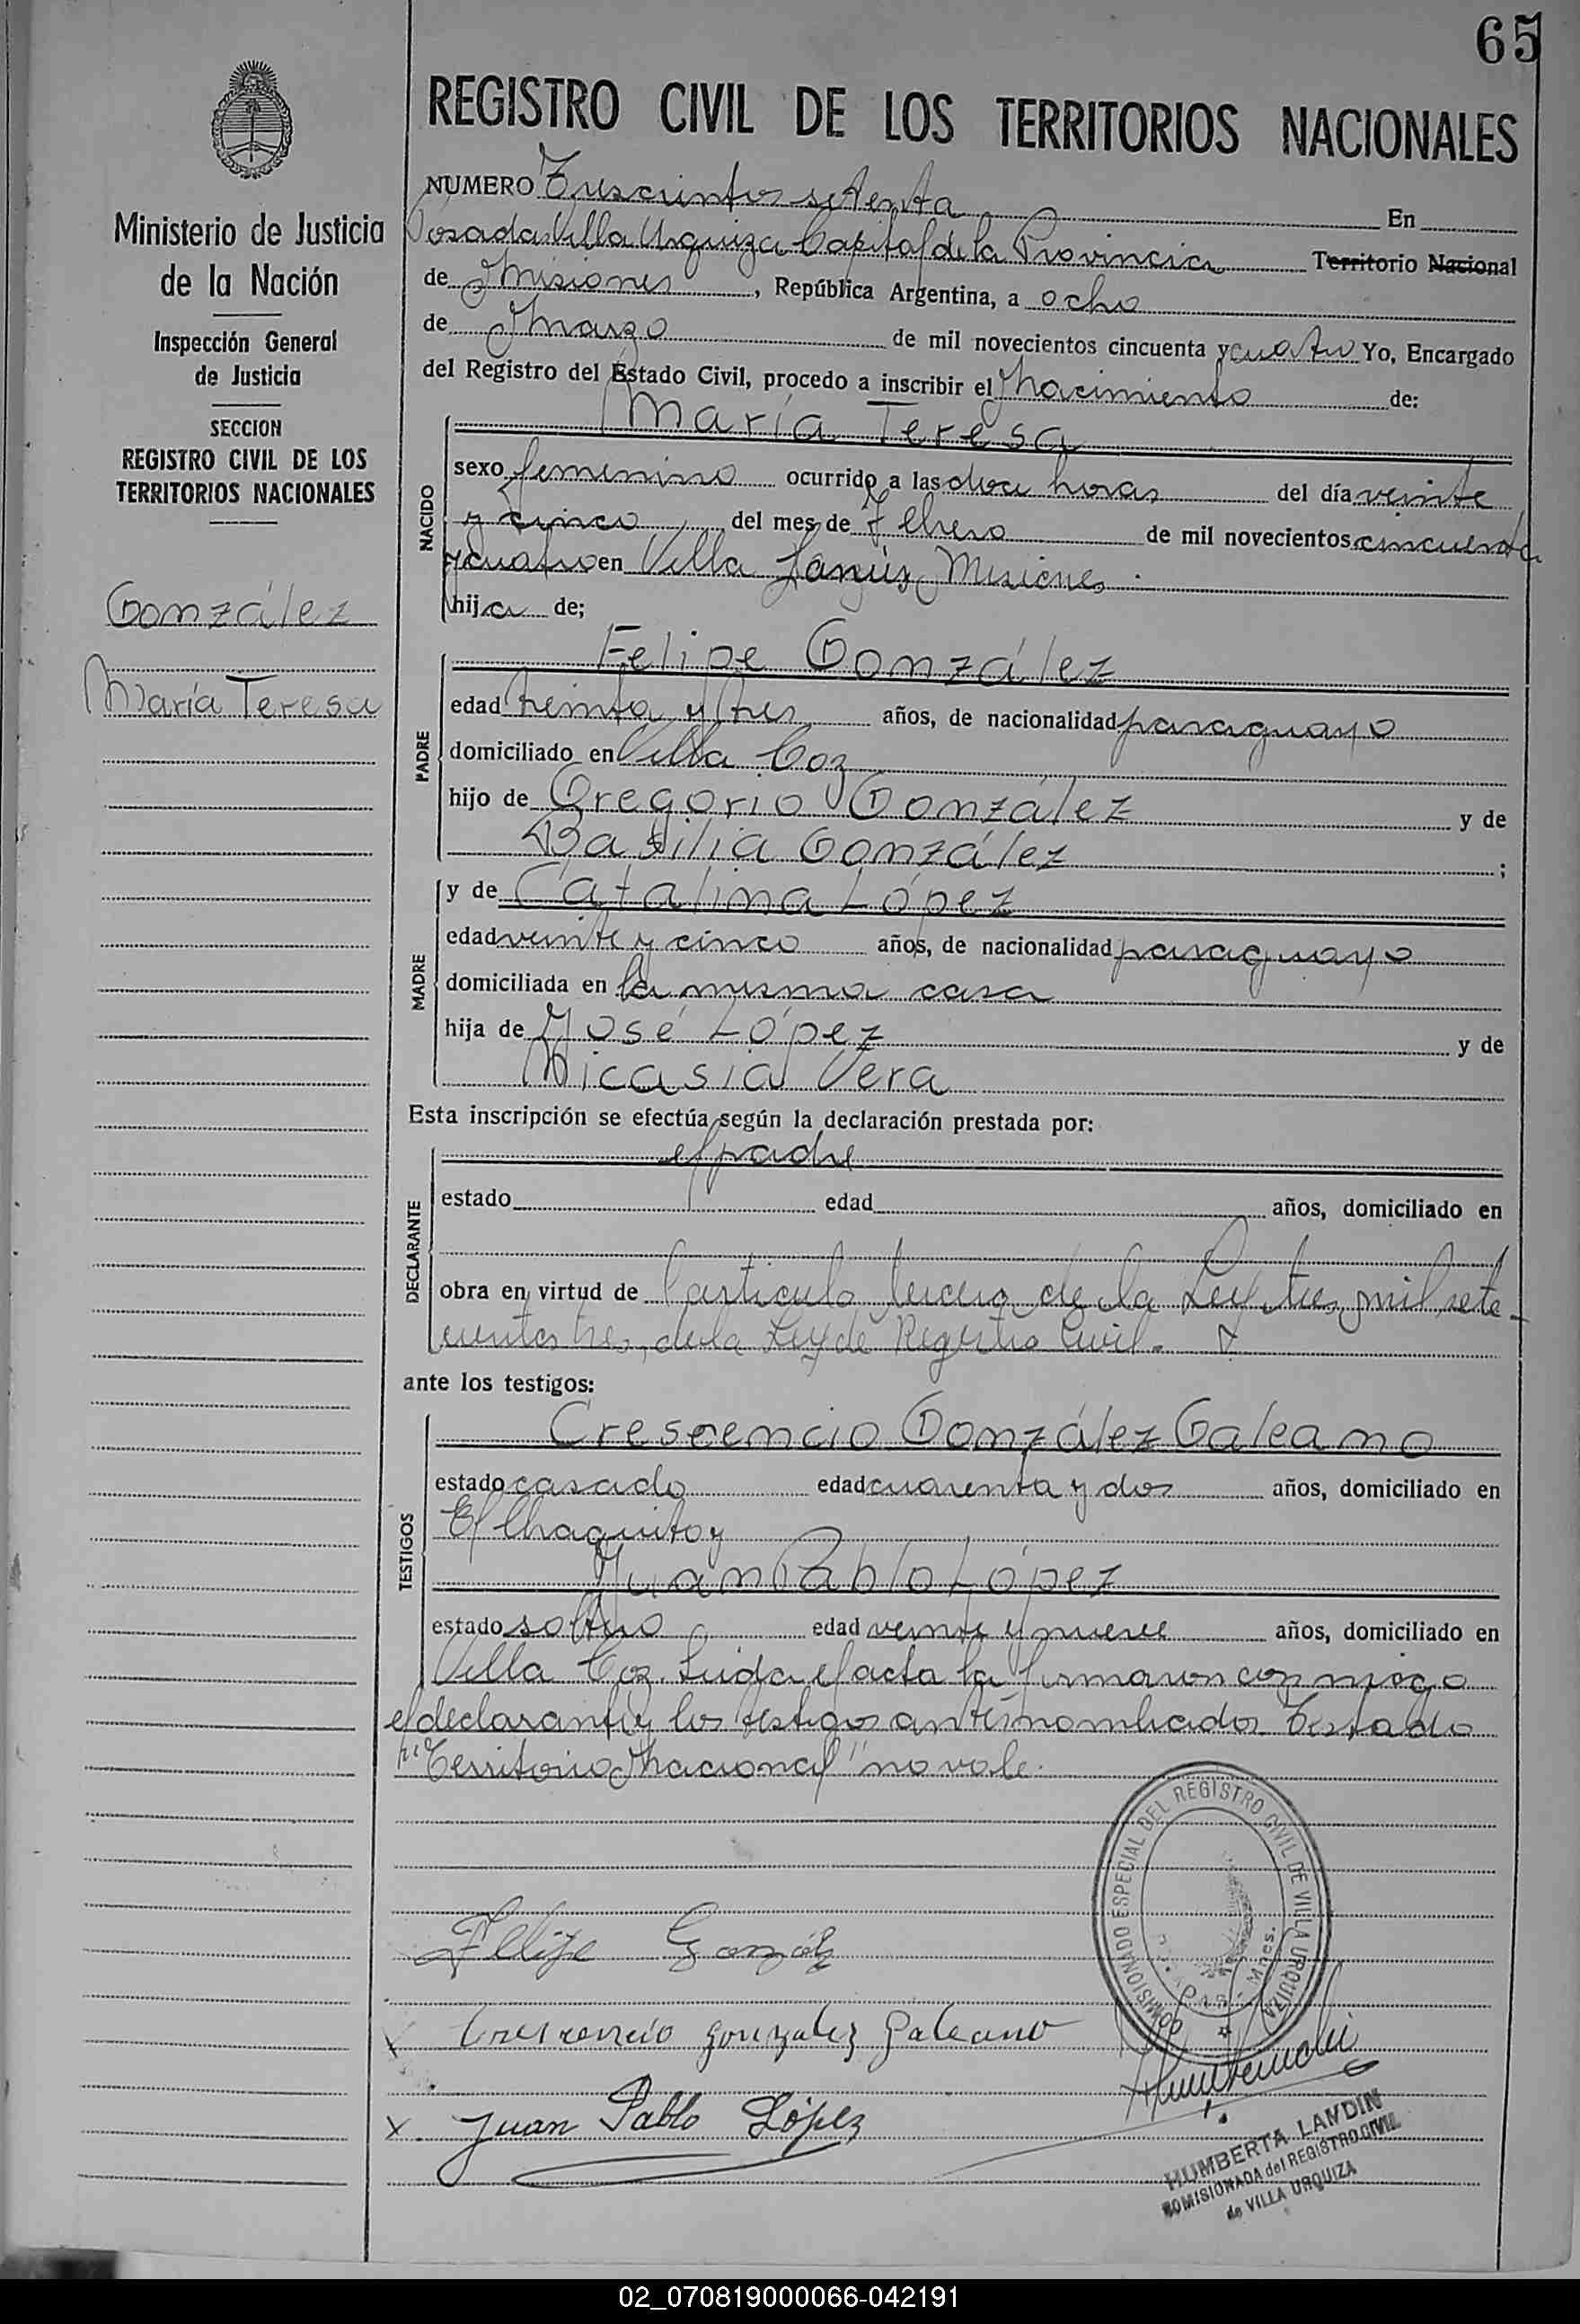 65
REGISTRO CIVIL DE LOS TERRITORIOS NACIONALES
Ministerio de Justicia
de la Nación
Inspección General
de Justicia
SECCION
REGISTRO CIVIL DE LOS
TERRITORIOS NACIONALES
González
María Teresa
NUMERO Trescientos setenta En
Posadas Villa Urquiza Capital de la Provincia Territorio Nacional
de Misiones, República Argentina, a ocho
de Marzo de mil novecientos cincuenta y cuatro Yo, Encargado
del Registro del Estado Civil, procedo a inscribir el Nacimiento de:
NACIDO
María Teresa
sexo femenino ocurrido a las doce horas del día veinte
y cinco del mes de Febrero de mil novecientos cincuenta
y cuatro en Villa Lanús, Misiones.
hija de;
PADRE
Felipe González
edad treinta y tres años, de nacionalidad paraguayo
domiciliado en Villa Coz
hijo de Gregorio González y de
Basilia González ;
MADRE
y de Catalina López
edad veinte y cinco años, de nacionalidad paraguayo
domiciliada en la misma casa
hija de José López y de
Nicasia Vera
Esta inscripción se efectúa según la declaración prestada por:
DECLARANTE
el padre
estado edad años, domiciliado en
obra en virtud de l'articulo tercero de la Ley tres mil sete-
cientos tres, de la Ley de Registro Civil.
ante los testigos:
TESTIGOS
Crescencio González Galeano
estado casado edad cuarenta y dos años, domiciliado en
El Chaquito y
Juan Pablo López
estado soltero edad veinte y nueve años, domiciliado en
Villa Coz. Leida el acta la firmaron conmigo
el declarante y los testigos antesnombrados. Testado
"Territorio Nacional" no vale.
COMISIONADO ESPECIAL DEL REGISTRO CIVIL DE VILLA URQUIZA
Felipe González
x Crescencio gonzalez galeano
x. Juan Pablo López
HUMBERTA LANDIN
COMISIONADA del REGISTRO CIVIL
de VILLA URQUIZA
02_070819000066-042191